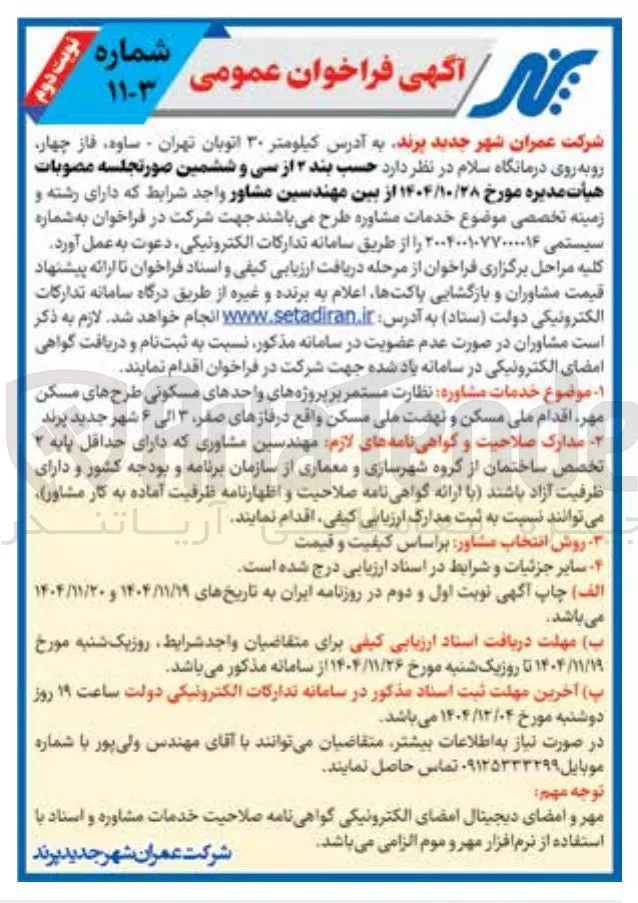 نوبت دوم
شماره
۱۱-۳
آگهی فراخوان عمومی
پرند
شرکت عمران شهر جدید پرند، به آدرس کیلومتر ۳۰ اتوبان تهران - ساوه، فاز چهار،
روبه‌روی درمانگاه سلام در نظر دارد حسب بند ۲ از سی و ششمین صورتجلسه مصوبات
هیأت‌مدیره مورخ ۱۴۰۴/۱۰/۲۸ از بین مهندسین مشاور واجد شرایط که دارای رشته و
زمینه تخصصی موضوع خدمات مشاوره طرح می‌باشند جهت شرکت در فراخوان به‌شماره
سیستمی ۲۰۰۴۰۰۱۰۷۷۰۰۰۰۱۶ را از طریق سامانه تدارکات الکترونیکی، دعوت به‌عمل آورد.
کلیه مراحل برگزاری فراخوان از مرحله دریافت ارزیابی کیفی و اسناد فراخوان تا ارائه پیشنهاد
قیمت مشاوران و بازگشایی پاکت‌ها، اعلام به برنده و غیره از طریق درگاه سامانه تدارکات
الکترونیکی دولت (ستاد) به آدرس: www.setadiran.ir انجام خواهد شد. لازم به ذکر
است مشاوران در صورت عدم عضویت در سامانه مذکور، نسبت به ثبت‌نام و دریافت گواهی
امضای الکترونیکی در سامانه یاد شده جهت شرکت در فراخوان اقدام نمایند.
۱-موضوع خدمات مشاوره: نظارت مستمر بر پروژه‌های واحدهای مسکونی طرح‌های مسکن
مهر، اقدام ملی مسکن و نهضت ملی مسکن واقع در فازهای صفر، ۳ الی ۶ شهر جدید پرند
۲- مدارک صلاحیت و گواهی‌نامه‌های لازم: مهندسین مشاوری که دارای حداقل پایه ۲
تخصص ساختمان از گروه شهرسازی و معماری از سازمان برنامه و بودجه کشور و دارای
ظرفیت آزاد باشند (با ارائه گواهی‌نامه صلاحیت و اظهارنامه ظرفیت آماده به کار مشاور)،
می‌توانند نسبت به ثبت مدارک ارزیابی کیفی، اقدام نمایند.
۳- روش انتخاب مشاور: براساس کیفیت و قیمت
۴- سایر جزئیات و شرایط در اسناد ارزیابی درج شده است.
الف) چاپ آگهی نوبت اول و دوم در روزنامه ایران به تاریخ‌های ۱۴۰۴/۱۱/۱۹ و ۱۴۰۴/۱۱/۲۰
می‌باشد.
ب) مهلت دریافت اسناد ارزیابی کیفی برای متقاضیان واجدشرایط، روزیک‌شنبه مورخ
۱۴۰۴/۱۱/۱۹ تا روزیک‌شنبه مورخ ۱۴۰۴/۱۱/۲۶ از سامانه مذکور می‌باشد.
پ) آخرین مهلت ثبت اسناد مذکور در سامانه تدارکات الکترونیکی دولت ساعت ۱۹ روز
دوشنبه مورخ ۱۴۰۴/۱۲/۰۴ می‌باشد.
در صورت نیاز به‌اطلاعات بیشتر، متقاضیان می‌توانند با آقای مهندس ولی‌پور با شماره
موبایل۰۹۱۲۵۳۳۳۲۹۹ تماس حاصل نمایند.
توجه مهم:
مهر و امضای دیجیتال امضای الکترونیکی گواهی‌نامه صلاحیت خدمات مشاوره و اسناد با
استفاده از نرم‌افزار مهر و موم الزامی می‌باشد.
شرکت عمران شهر جدید پرند